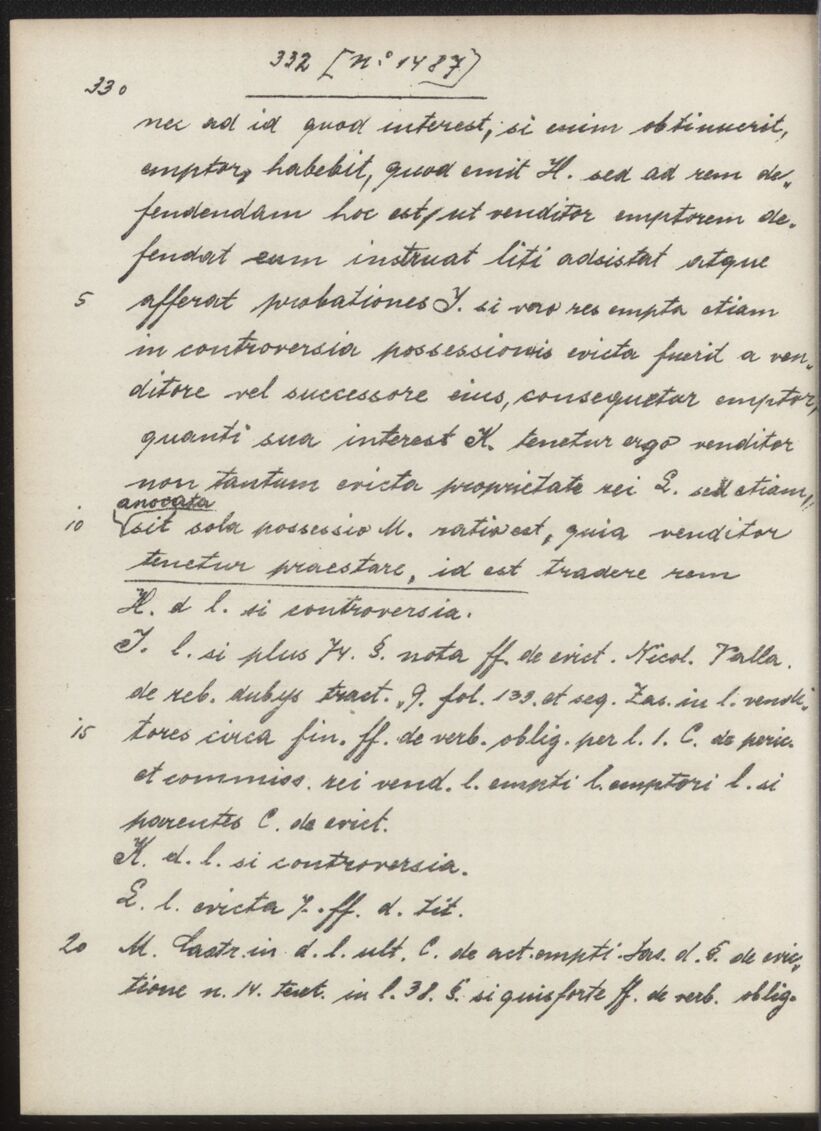 332 [n.° 1487]
330
nec ad id quod interest, si enim obtinuerit,
emptor, habebit, quod emit H. sed ad rem de„
fendendam hoc est, ut venditor emptorem de„
fendat eum instruat liti adsistat atque
5 afferat probationes J. si vero res empta etiam
in controversia possessionis evicta fuerit a ven„
ditore vel successore eius, consequetur emptor,
quanti sua interest K. tenetur ergo venditor
non tantum evicta proprietate rei L. sed etiam,
avocata
10 sit sola possessio M. ratio est, quia venditor
tenetur praestare, id est tradere rem
H. d l. si controversia.
J. l. si plus 74. §. nota ff. de evict. Nicol. Valla.
de reb. dubys tract. 9. fol. 133. et seq. Zas. in l. vendi„
15 tores circa fin. ff. de verb. oblig. per l. 1. C. de peric.
et commiss. rei vend. l. empti l. emptori l. si
parentes C. de evict.
K. d. l. si controversia.
L. l. evicta 7. ff. d. tit.
20 M. Castr. in d. l. ult. C. de act. empti. Jas. d. §. de evic„
tione n. 14. text. in l. 38. §. si quis forte ff. de verb. oblig.